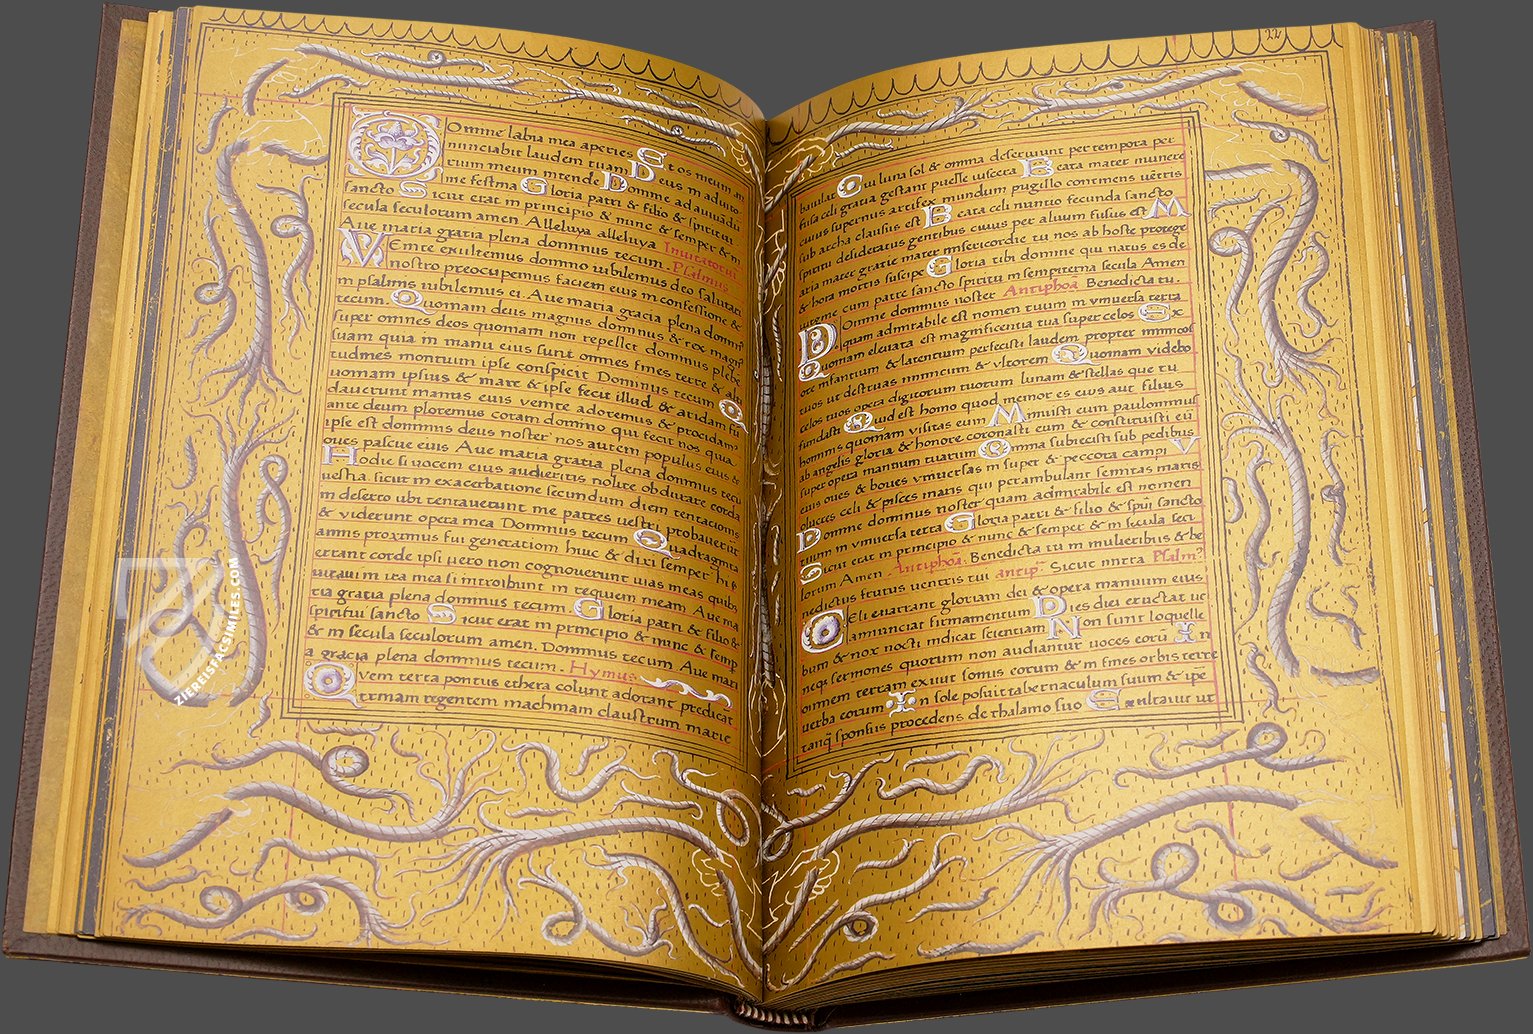 Omine labia mea aperies Et os meum an
nunciabit laudem tuam Deus in adiuto
rium meum intende Domine ad aiuvādū
me festina Gloria patri & filio & spiritui
sancto Sicut erat in principio & nunc & semper & in
secula seculorum amen. Alleluya alleluya Invitatoriū
Ave maria gratia plena dominus tecum. Psalmus
VEnite exultemus domino iubilemus deo salutari
nostro preocupemus faciem eius in confessione &
in psalmis iubilemus ei. Ave maria gratia plena dominꝰ
tecum. Quoniam deus magnus dominus & rex magnꝰ
super omnes deos quoniam non repellet dominus plebē
suam quia in manu eius sunt omnes fines terre & alti
tudines montium ipse conspicit Dominus tecum Q
uoniam ipsius & mare & ipse fecit illud & aridam fū
daverunt manus eius venite adoremus & procidamꝰ
ante deum ploremus coram domino qui fecit nos quia
ipse est dominus deus noster nos autem populus eius &
oves pascue eius Ave maria gratia plena dominus tecū
Hodie si vocem eius audieritis nolite obdurare corda
vestra sicut in exacerbatione secundum diem tentacionis
in deserto ubi tentaverunt me patres vestri probaverūt
& viderunt opera mea Dominus tecum Quadraginta
annis proximus fui generationi huic & dixi semper hii
errant corde ipsi vero non cognoverunt vias meas quibꝰ
iuravi in ira mea si introibunt in requiem meam Ave ma
ria gratia plena dominus tecum Gloria patri & filio &
spiritui sancto Sicut erat in principio & nunc & semp
& in secula seculorum amen. Dominus tecum Ave mari
a gracia plena dominus tecum. Hymus
Qvem terra pontus ethera colunt adorant predicāt
trinam regentem machinam claustrum marie
baiulat Cui luna sol & omnia deserviunt per tempora per
fusa celi gratia gestant puelle viscera Beata mater munere
cuius supernus artifex mundum pugillo continens vētris
sub archa clausus est Beata celi nuntio fecunda sancto
spiritu desideratus gentibus cuius per alvum fusus est M
aria mater gratie mater misericordie tu nos ab hoste protege
& hora mortis suscipe Gloria tibi domine qui natus es de
virgine cum patre sancto spiritu in sempiterna secula Amen
Antiphoā Benedicta tu.
DOmine dominus noster
quam admirabile est nomen tuum in universa terra
Quoniam elevata est magnificentia tua super celos Ex
ore infantium & latentium perfecisti laudem propter inimicos
tuos ut destruas inimicum & ultorem Quoniam videbo
celos tuos opera digitorum tuorum lunam & stellas que tu
fundasti Quid est homo quod memor es eius aut filius
hominis quoniam visitas eum Minuisti eum paulominus
ab angelis gloria & honore coronasti eum & constituisti eū
super opera manuum tuarum Omnia subiecisti sub pedibus
eius oves & boves universas in super & peccora campi V
olucces celi & pisces maris qui perambulant semitas maris
Domine dominus noster quam admirabile est nomen
tuum in universa terra Gloria patri & filio & spūi sancto
Sicut erat in principio & nunc & semper & in secula secu
lorum Amen Antiphoā. Benedicta tu in mulieribus & be
nedictus frutus ventris tui antip̄ Sicut mirra Psalmꝰ
CEli enarrant gloriam dei & opera manuum eius
annunciat firmamentum Dies diei eructat ver
bum & nox nocti indicat scientiam Non sunt loquelle
neqꝫ sermones quorum non audiantur voces eorū In
omnem terram exivit sonus eorum & in fines orbis terre
verba eorum In sole posuit tabernaculum suum & ipē
tanq̄ sponsus procedens de thalamo suo Exultavit ut
ZIEREISFACSIMILES.COM